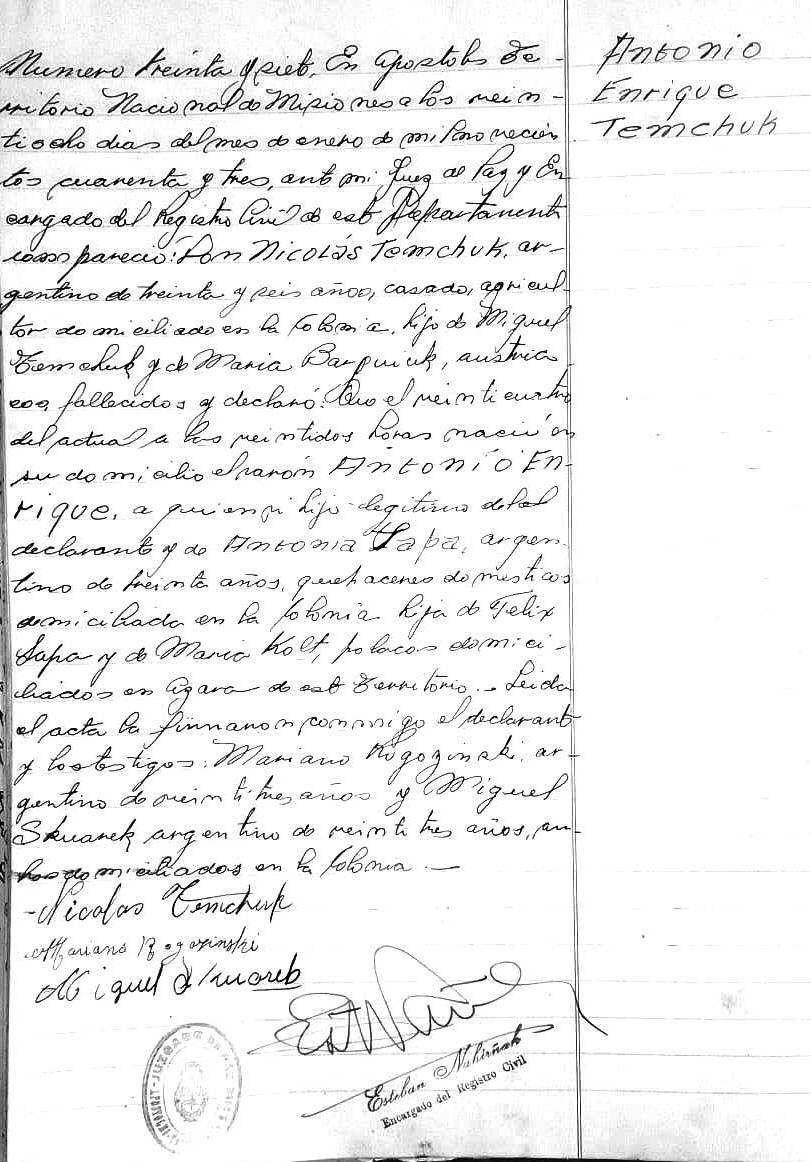 Numero treinta y siete, En Apostoles Te-
rritorio Nacional de Misiones a los vein-
tiocho dias del mes de enero de mil novecien
tos cuarenta y tres, ante mi Juez de Paz y En
cargado del Registro Civil de este Departamento
compareció: Don Nicolás Temchuk, ar-
gentino de treinta y seis años, casado, agricul-
tor domiciliado en la Colonia, hijo de Miguel
Temchuk y de Maria, austria
cos, fallecidos y declaró: Que el veinticuatro
del actual a las veintidos horas nació en
su domicilio el varón Antonio En-
rique, a quien hijo legitimo del
declarante y de Antonia Sapa, argen-
tina de treinta años, quehaceres domesticos
domiciliada en la Colonia hija de Felix
Sapa y de Maria Kolt, polacos domici-
liados en Azara de este Territorio.- Leida
el acta la firmaron conmigo el declarante
y los testigos: Mariano Rogozinski, ar-
gentino de veintitres años y Miguel
Skwarek argentino de veintitres años, am-
bos domiciliados en la Colonia.—
Nicolas Temchuk
Mariano Rogozinski
Miguel Skwarek
Esteban Nahirñak
Encargado del Registro Civil
JUZGADO DE PAZ
Antonio
Enrique
Temchuk